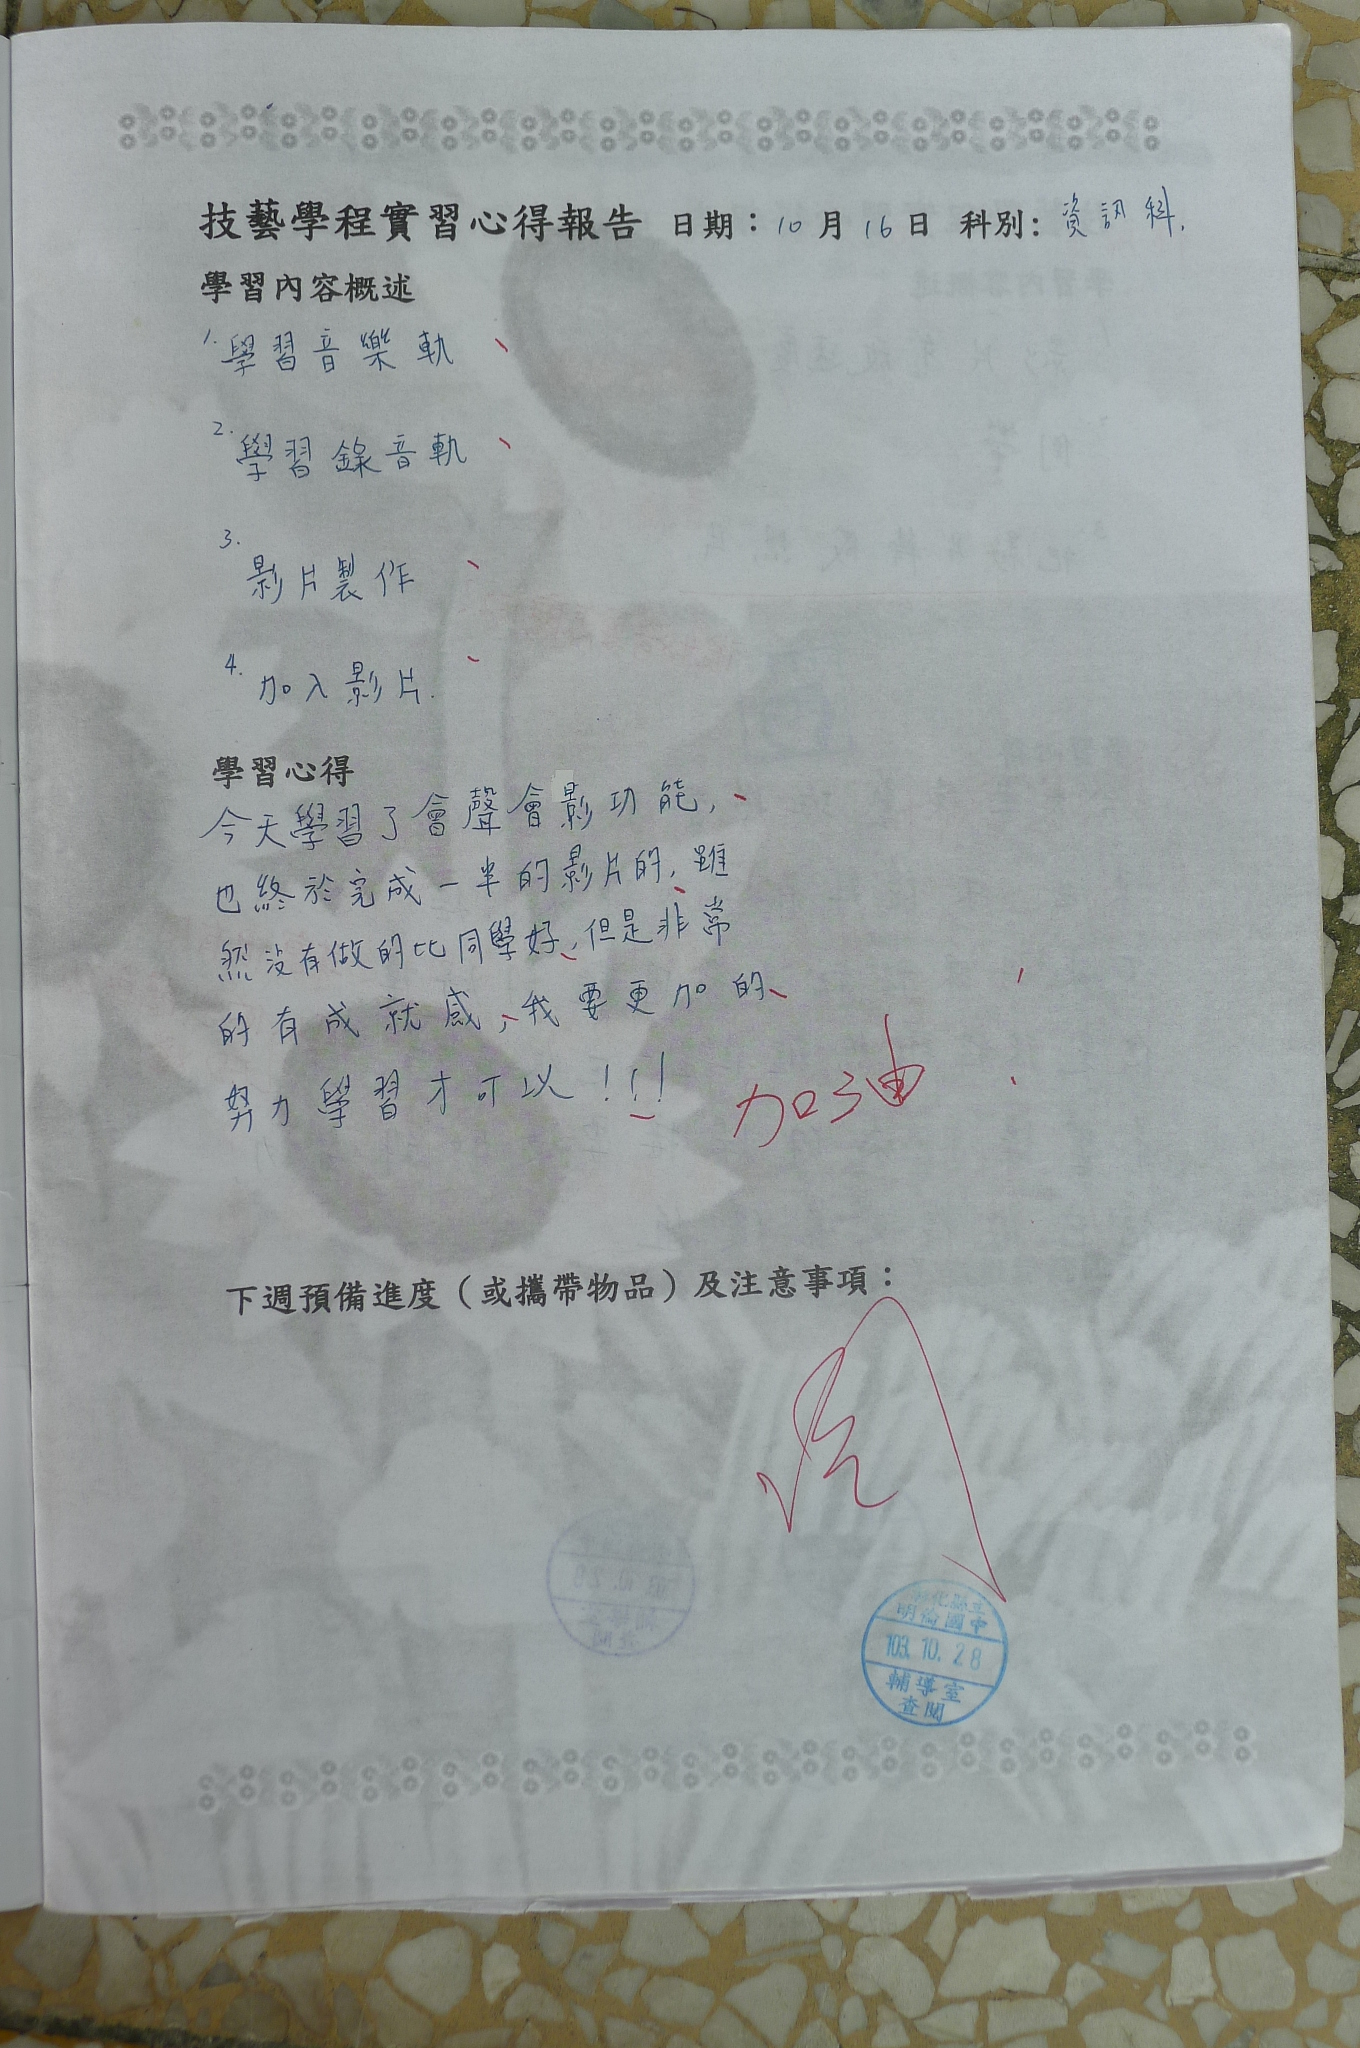 技藝學程實習心得報告 日期：10月16日 科別：資訊科.
學習內容概述
1. 學習音樂軌
2. 學習錄音軌
3. 影片製作
4. 加入影片.
學習心得
今天學習了會聲會影功能,
也終於完成一半的影片的, 雖
然沒有做的比同學好, 但是非常
的有成就感, 我要更加的
努力學習才可以!!!
加油
下週預備進度（或攜帶物品）及注意事項：
彰化縣立
明倫國中
103.10.28
輔導室
查閱